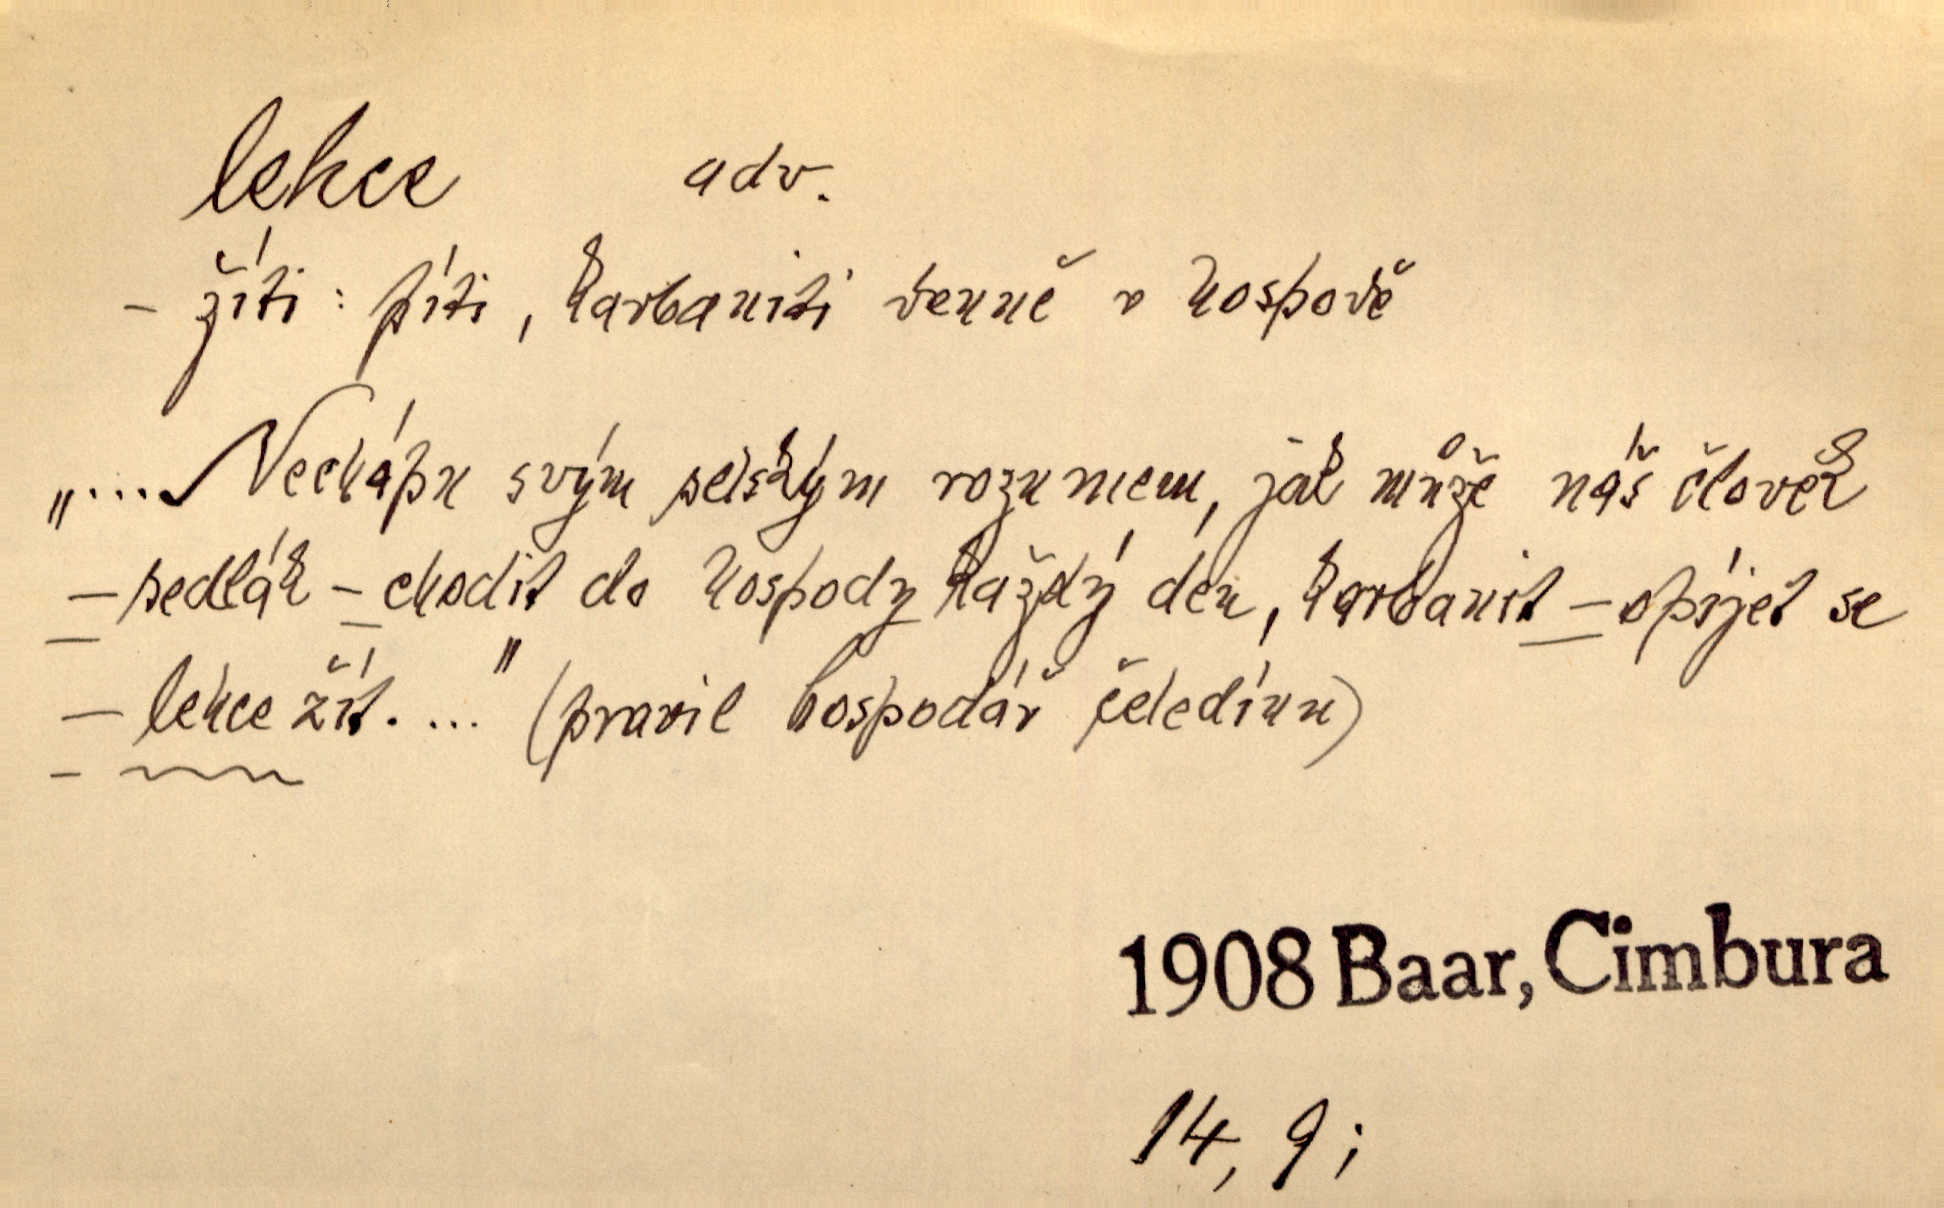 lehce adv.
– žíti : píti, karbaniti denně v hospodě
„....Nechápu svým selským rozumem, jak může náš člověk
– sedlák – chodit do hospody každý den, karbanit – opíjet se
– lehce žít. ..." (pravil hospodář čeledínu)
1908 Baar, Cimbura
14, 9;